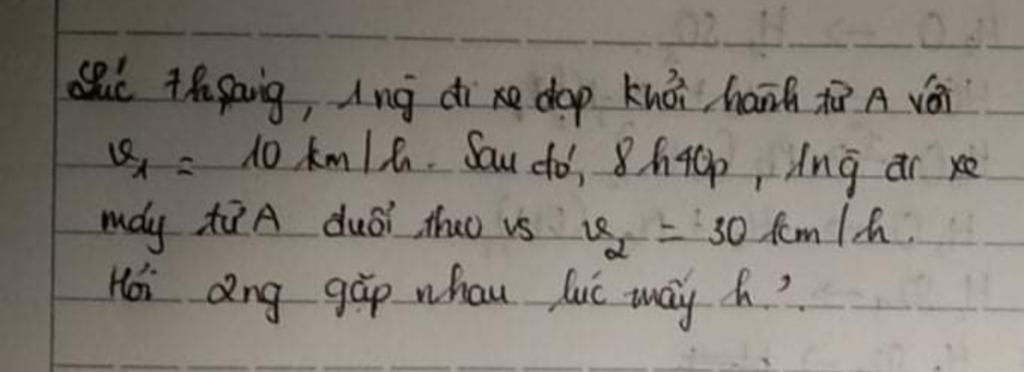 Lúc 7h sáng, 1 ng đi xe đạp khởi hành từ A với
v₁ = 10 km/h. Sau đó, 8h40p, 1 ng đi xe
máy từ A đuổi theo vs v₂ = 30 km/h.
Hỏi 2 ng gặp nhau lúc mấy h?